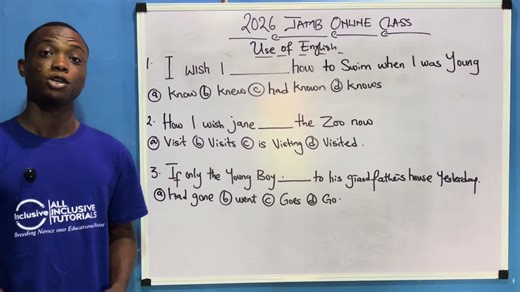 2026 JAMB ONLINE CLASS
Use of English
1. I wish I ______ how to swim when I was Young
ⓐ know ⓑ knew ⓒ had known ⓓ knows
2. How I wish jane _____ the Zoo now
ⓐ Visit ⓑ Visits ⓒ is Visting ⓓ Visited.
3. If only the Young Boy ____ to his grandfather's house Yesterday.
ⓐ Had gone ⓑ went ⓒ Goes ⓓ Go.
Inclusive
ALL
INCLUSIVE
TUTORIALS